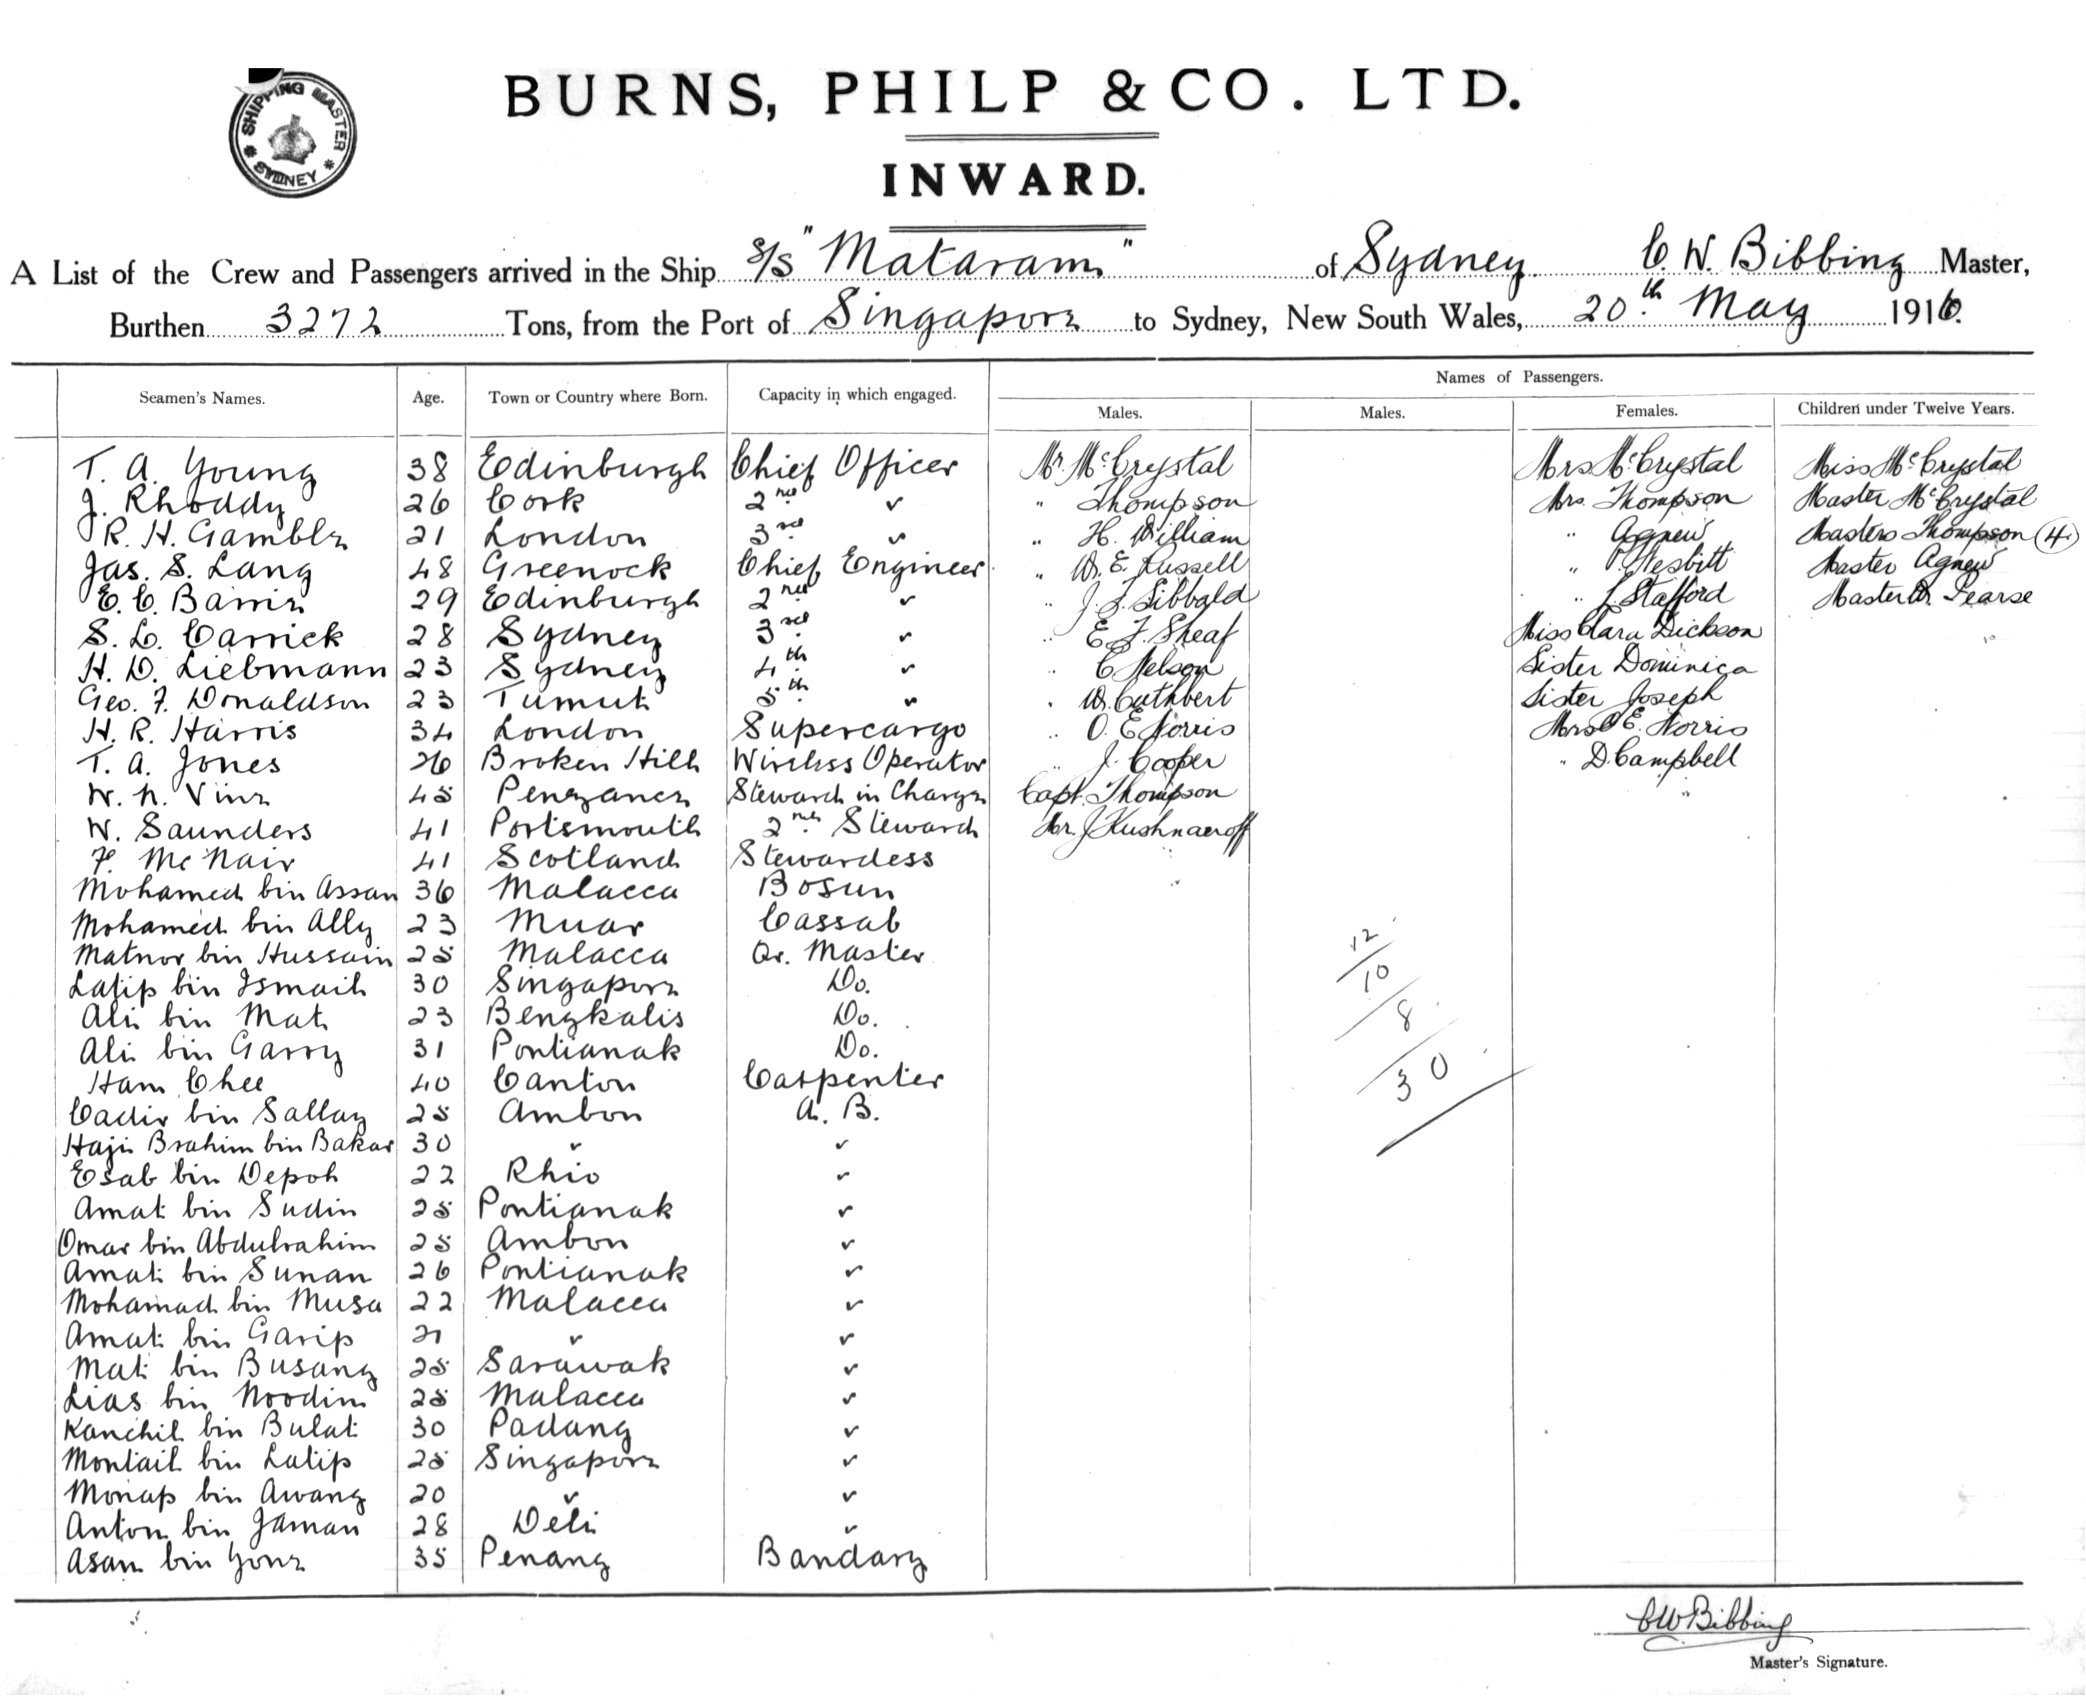 SHIPPING MASTER
* SYDNEY *
BURNS, PHILP & CO. LTD.
INWARD.
A List of the Crew and Passengers arrived in the Ship S/S "Mataram" of Sydney C. W. Bibbing Master,
Burthen 3272 Tons, from the Port of Singapore to Sydney, New South Wales, 20th May 1916.
Names of Passengers.
Seamen's Names. Age. Town or Country where Born. Capacity in which engaged. Males. Males. Females. Children under Twelve Years.
T. A. Young 38 Edinburgh Chief Officer Mr. McCrystal Mrs McCrystal Miss McCrystal
J. Rhoddy 26 Cork 2nd " " Thompson Mrs. Thompson Master McCrystal
R. H. Gamble 21 London 3rd " " H. William " Agnew Masters Thompson (4)
Jas. S. Lang 48 Greenock Chief Engineer " W. E. Russell " Nesbitt Master Agnew
E. C. Barrie 29 Edinburgh 2nd " " J. F. Sibbald " J. Stafford Master Pearse
S. L. Carrick 28 Sydney 3rd " " E. J. Sheaf Miss Clara Dickson
H. D. Liebmann 23 Sydney 4th " " C Nelson Sister Dominica
Geo. F. Donaldson 23 Tumut 5th " " W. Cuthbert Sister Joseph
H. R. Harris 34 London Supercargo " O. E. Norris Mrs O E. Norris
T. A. Jones 26 Broken Hill Wireless Operator " J. Cooper " D. Campbell
W. N. Vine 45 Penzance Steward in Charge Capt. Thompson
W. Saunders 41 Portsmouth 2nd Steward Mr. J Kushnaeroff
F. McNair 41 Scotland Stewardess
Mohamed bin Assan 36 Malacca Bosun
Mohamed bin Ally 23 Muar Cassab
Matnor bin Hussain 25 Malacca Qr. Master
Latip bin Ismail 30 Singapore Do.
Ali bin Mat 23 Bengkalis Do.
Ali bin Garry 31 Pontianak Do.
Ham Chee 40 Canton Carpenter
Cadir bin Sallay 25 Ambon A. B.
Haji Brahim bin Bakar 30 " "
Esab bin Depoh 22 Rhio "
Amat bin Sudin 25 Pontianak "
Omar bin Abdulrahim 25 Ambon "
Amat bin Sunan 26 Pontianak "
Mohamad bin Musa 22 Malacca "
Amat bin Garip 21 " "
Mat bin Busang 25 Sarawak "
Lias bin Noodin 25 Malacca "
Kanchil bin Bulat 30 Padang "
Montail bin Latip 25 Singapore "
Monap bin Awang 20 " "
Anton bin Jaman 28 Deli "
Asam bin Yone 35 Penang Bandary
12
10
8
30
CWBibbing
Master's Signature.